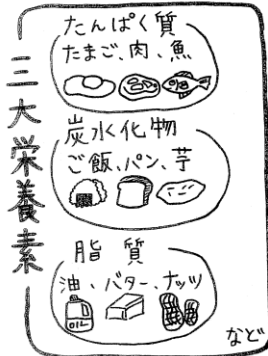 三大栄養素
たんぱく質
たまご、肉、魚
炭水化物
ご飯、パン、芋
脂質
油、バター、ナッツ
OIL
など